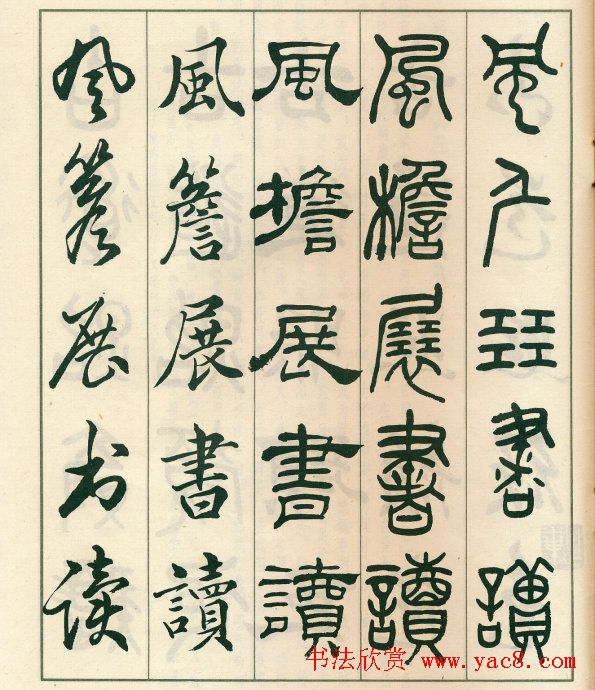 風厃㠭書讀
風檐展書讀
風檐展書讀
風簷展書讀
风簷展书读
书法欣赏 www.yac8.com